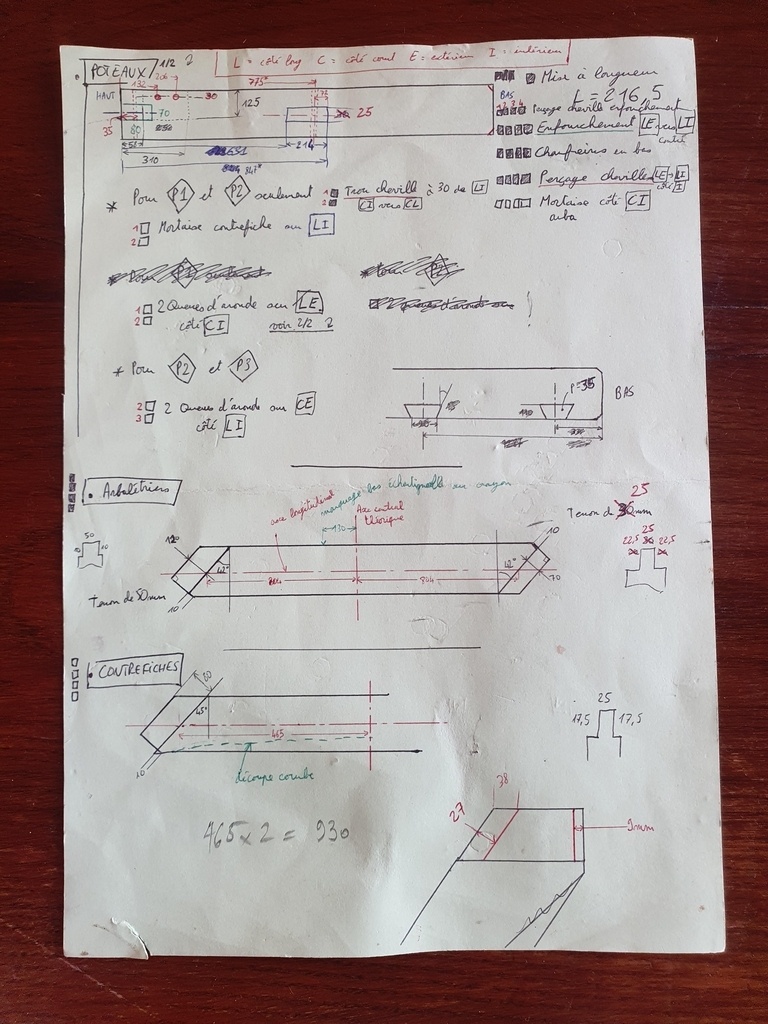 L = côté long C = côté court E = extérieur I = intérieur
POTEAUX 1/2 2
132 206 775*
HAUT 30
125
70
35 80
25
214
310
347*
BAS
1 2 3 4
Mise à longueur
L = 216,5
Perçage cheville enfourchement
Enfourchement LE vers LI
Chanfreins en bas
Perçage chevilles LE LI
côté I
Mortaise côté CI
* Pour P1 et P2 seulement
1 Trou cheville à 30 de LI
2 CI vers CL
1 Mortaise contrefiche sur LI
2
1 2 Queues d'aronde sur LE
2 côté CI voir 2/2 2
* Pour P2 et P3
2 2 Queues d'aronde sur CE
3 côté LI
P=35
BAS
• Arbalétriers
marquage bas échantignolle au crayon
axe longitudinal
130
Axe central théorique
25
Tenon de mm
50
10
42°
804
42°
10
70
25
22,5 22,5
Tenon de 50mm
10
• CONTREFICHES
80
45°
465
10
découpe courbe
25
17,5 17,5
465 x 2 = 930
38
27
9mm